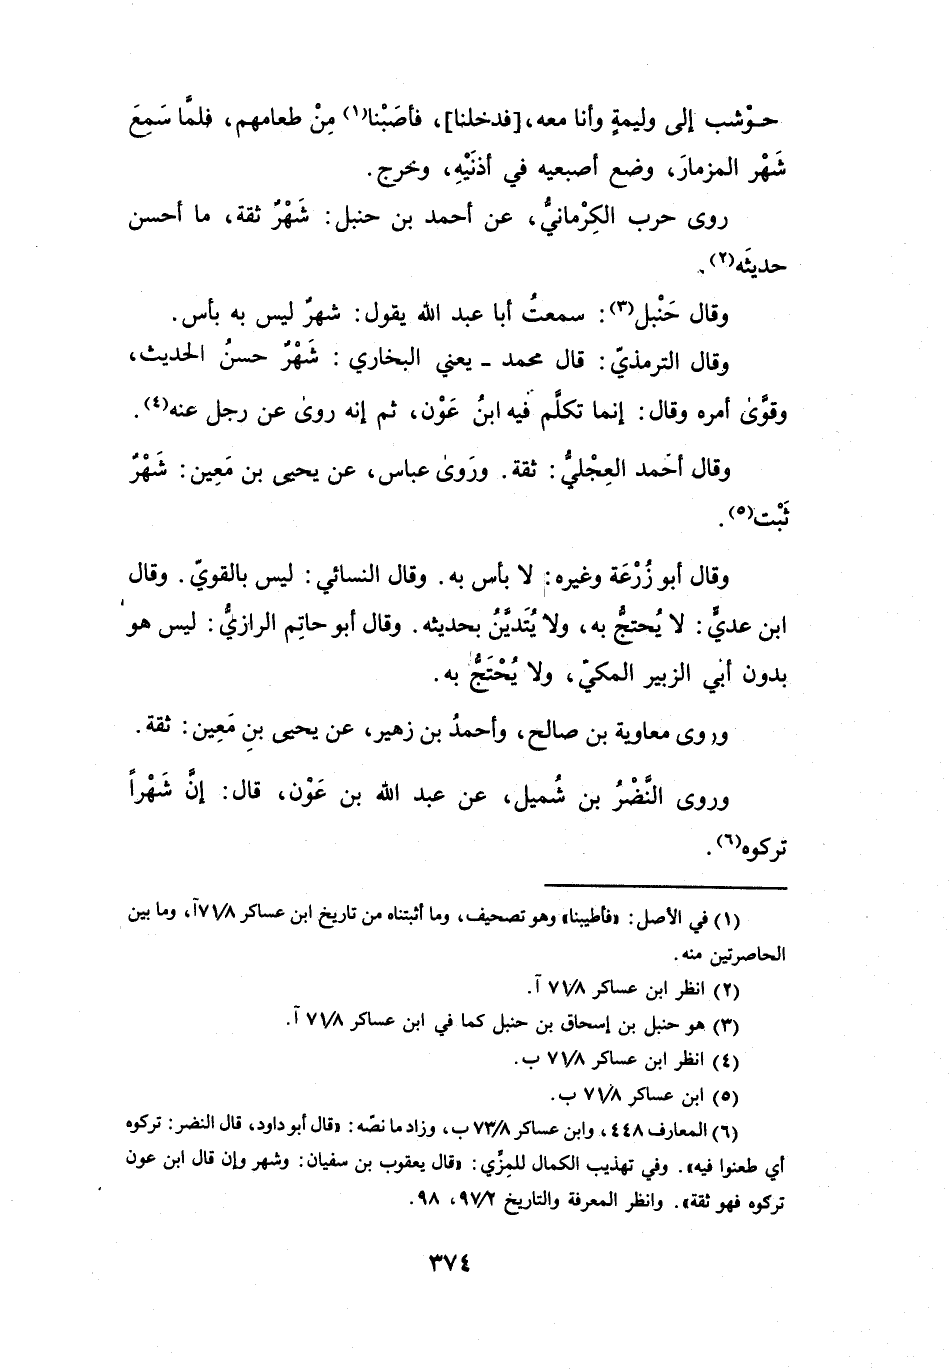 حـوْشب إلى وليمةٍ وأنا معه، [فدخلنا]، فأصَبْنا(١) مِنْ طعامهم، فلمَّا سَمِعَ
شَهْر المزمارَ، وضع أصبعيه في أذنَيْهِ، وخرج.
روى حرب الكِرْمانيُّ، عن أحمد بن حنبل: شَهْرٌ ثقة، ما أحسن
حديثَه(٢).
وقال حَنْبل(٣): سمعتُ أبا عبد الله يقول: شهرٌ ليس به بأس.
وقال الترمذيّ: قال محمد ـ يعني البخاري: شَهْرٌ حسنُ الحديث،
وقوَّىٰ أمره وقال: إنما تكلَّم فيه ابنُ عَوْن، ثم إنه روىٰ عن رجل عنه(٤).
وقال أحمد العِجْليُّ: ثقة. ورَوىٰ عباس، عن يحيى بن مَعِين: شَهْرٌ
ثَبْت(٥).
وقال أبو زُرْعَة وغيره: لا بأس به. وقال النسائي: ليس بالقويّ. وقال
ابن عديٍّ: لا يُحتجُّ به، ولا يُتَديَّنُ بحديثه. وقال أبو حاتِم الرازيُّ: ليس هو
بدون أبي الزبير المكيّ، ولا يُحْتَجُّ به.
وروى معاوية بن صالح، وأحمدُ بن زهير، عن يحيى بن مَعِين: ثقة.
وروى النَّضْرُ بن شُميل، عن عبد الله بن عَوْن، قال: إنَّ شَهْراً
تركوه(٦).
(١) في الأصل: «فأطيبنا» وهو تصحيف، وما أثبتناه من تاريخ ابن عساكر ٧١/٨آ، وما بين
الحاصرتين منه.
(٢) انظر ابن عساكر ٧١/٨ آ.
(٣) هو حنبل بن إسحاق بن حنبل كما في ابن عساكر ٧١/٨ آ.
(٤) انظر ابن عساكر ٧١/٨ ب.
(٥) ابن عساكر ٧١/٨ ب.
(٦) المعارف ٤٤٨، وابن عساكر ٧٣/٨ ب، وزاد ما نصّه: «قال أبو داود، قال النضر: تركوه
أي طعنوا فيه». وفي تهذيب الكمال للمِزِّي: «قال يعقوب بن سفيان: وشهر وإن قال ابن عون
تركوه فهو ثقة». وانظر المعرفة والتاريخ ٩٧/٢، ٩٨.
٣٧٤